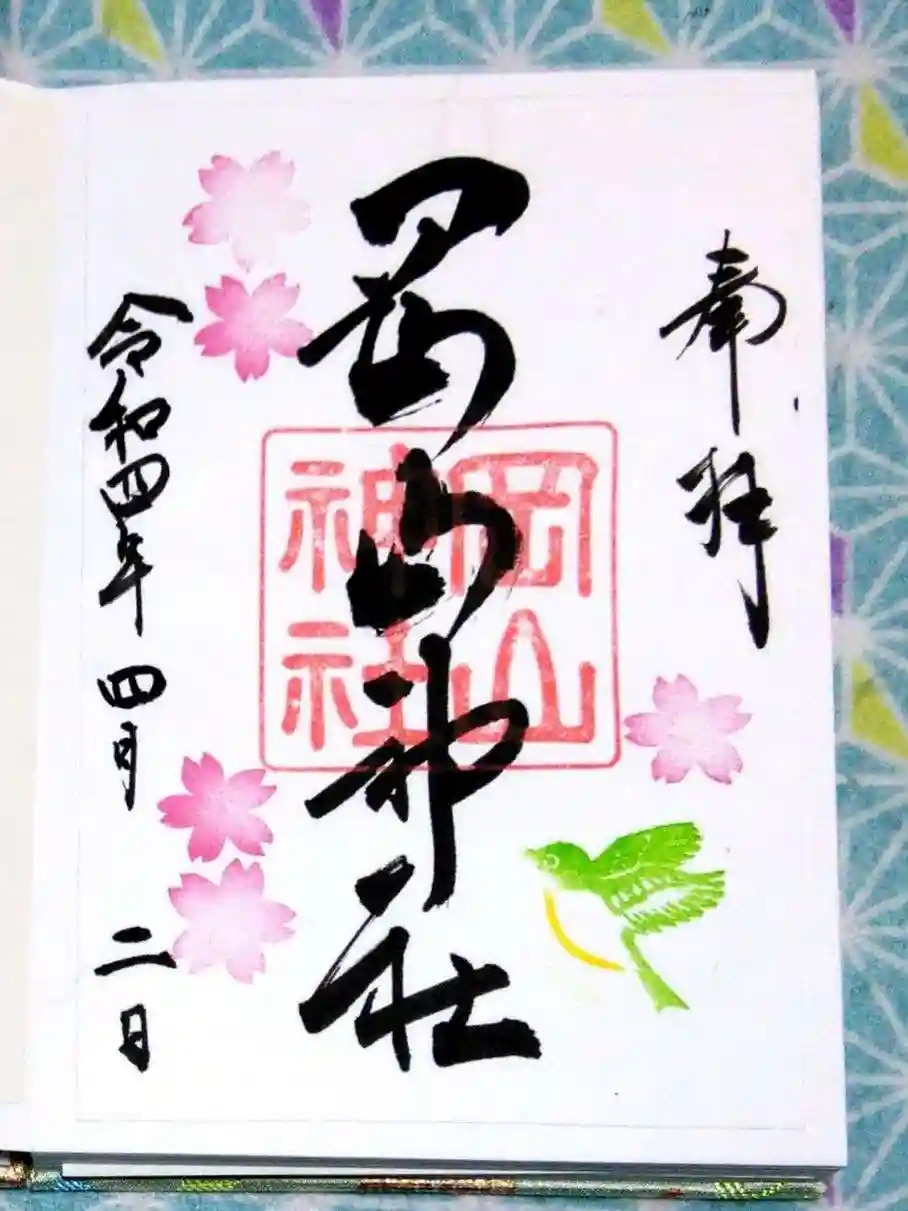 奉拝
岡山神社
岡山
神社
令和四年 四月 二日